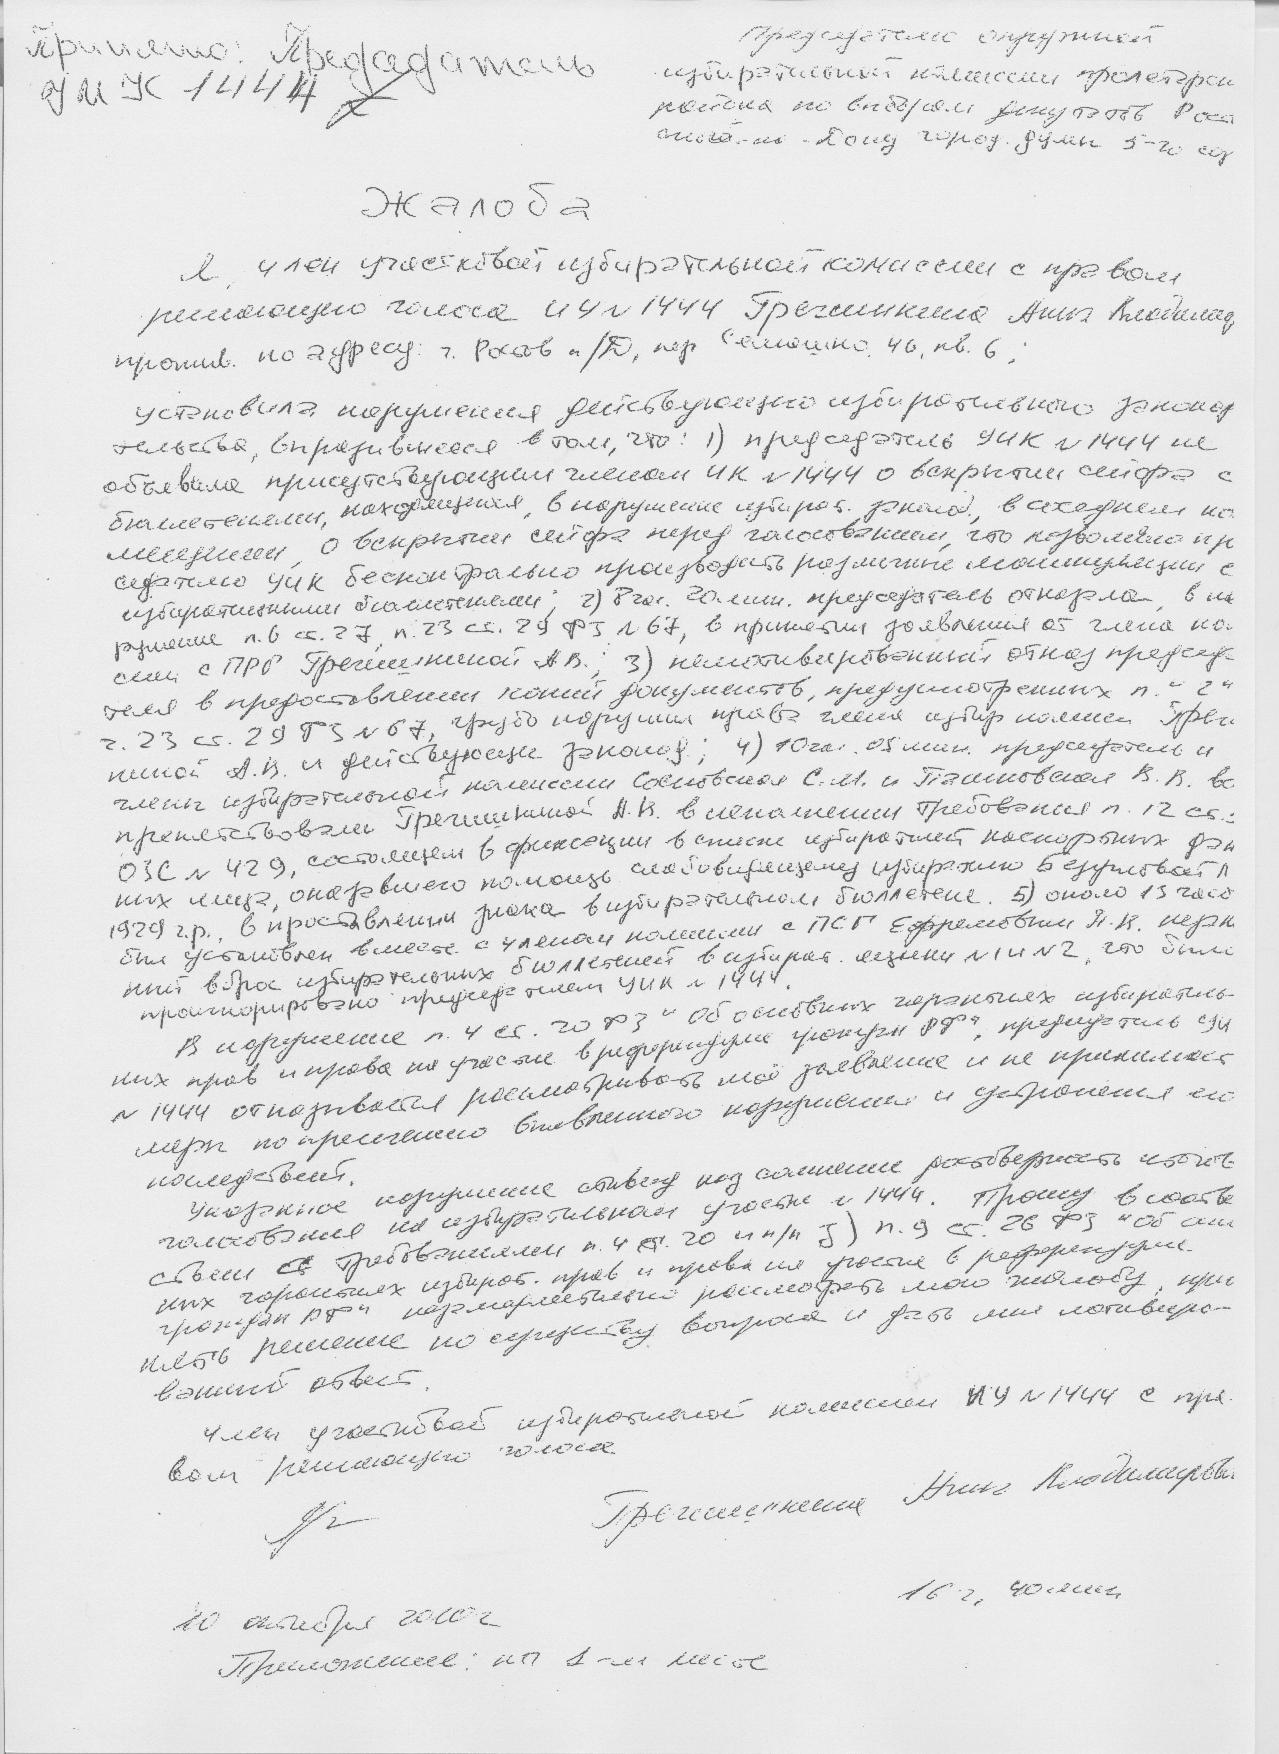 Принято: Председатель
УИК 1444
Председателю окружной
избирательной комиссии пролетарск
района по выборам депутатов Рост
това-на-Дону город. Думы 5-го соз
Жалоба
Я, член участковой избирательной комиссии с правом
решающего голоса ИУ №1444 Гречишкина Анна Владимир
прожив. по адресу: г. Ростов н/Д, пер Семашко, 46, кв. 6;
установила нарушения действующего избирательного законод
тельства, выразившееся в том, что: 1) председатель УИК №1444 не
объявила присутствующим членам ИК №1444 о вскрытии сейфа с
бюллетенями, находящегося, в нарушение избират. законод, в соседнем по
мещении, о вскрытии сейфа перед голосованием, что позволило пр
седателю УИК бесконтрольно производить различные манипуляции с
избирательными бюллетенями; 2) 8 час. 20 мин. председатель отказала, в на
рушение п. 6 ст. 27, п. 23 ст. 29 ФЗ №67, в принятии заявления от члена ко
сии с ПРГ Гречишкиной А.В.; 3) немотивированный отказ председа
теля в предоставлении копий документов, предусмотренных п. "г"
ч. 23 ст. 29 ФЗ №67, грубо нарушил права члена избир комиссии Гречи
киной А.В. и действующее законод; 4) 10 час. 05 мин. председатель и
члены избирательной комиссии Сосновская С.М. и Пашковская В.В. вос
препятствовали Гречишкиной А.В. в исполнении требования п. 12 ст.
ОЗС №429, состоящем в фиксации в списке избирателей паспортных дан
ных лица, оказавшего помощь слабовидящему избирателю
1929 г.р., в проставлении знака в избирательном бюллетене. 5) около 13 часов
был установлен вместе с членом комиссии с ПСГ Ефремовым Н.В. незак
ный вброс избирательных бюллетеней в избират. ящики №1 и №2, что было
проигнорировано председателем УИК №1444.
В нарушение п. 4 ст. 20 ФЗ "Об основных гарантиях избиратель-
ных прав и права на участие в референдуме граждан РФ", председатель УИ
№1444 отказывается рассматривать моё заявление и не принимает
меры по пресечению выявленного нарушения и устранения его
последствий.
Указанное нарушение ставит под сомнение достоверность итогов
голосования на избирательном участке №1444. Прошу в соотве
ствии с требованиями п. 4 ст. 20 и п/п п. 9 ст. 26 ФЗ "Об осн
ных гарантиях избират. прав и права на участие в референдуме
граждан РФ" незамедлительно рассмотреть мою жалобу, при
нять решение по существу вопроса и дать мне мотивиро-
ванный ответ.
Член участковой избирательной комиссии ИУ №1444 с пра-
вом решающего голоса
Гречишкина Анна Владимировн
16 ч, 40 мин
10 октября 2010г
Приложение: на 1-м листе